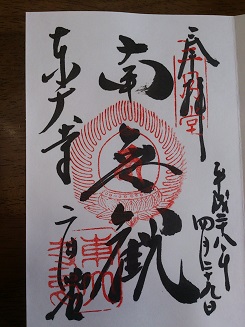 奉拝
平成二八年四月二九日
南無観
東大寺
二月堂